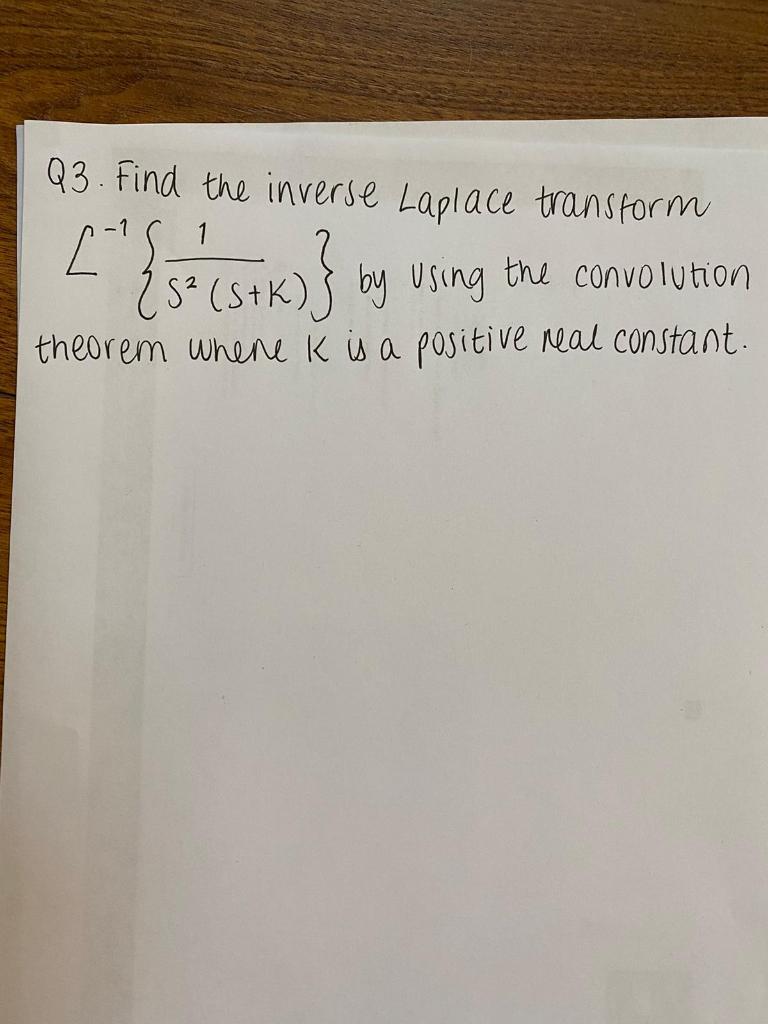 Q3. Find the inverse Laplace transform
L⁻¹{1/(S²(S+K))} by using the convolution
theorem where K is a positive real constant.